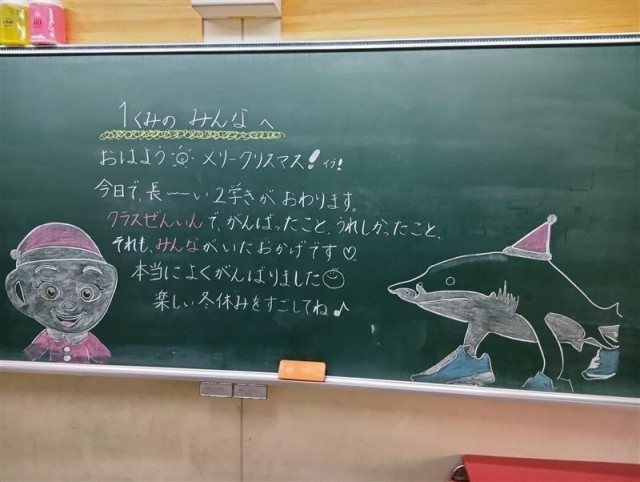 1くみの みんなへ
おはよう メリークリスマス! イブ!
今日で、長〜い2学きが おわります。
クラスぜんいんで、がんばったこと、うれしかったこと、
それも、みんながいたおかげです♡
本当によくがんばりました☺
楽しい冬休みをすごしてね♪